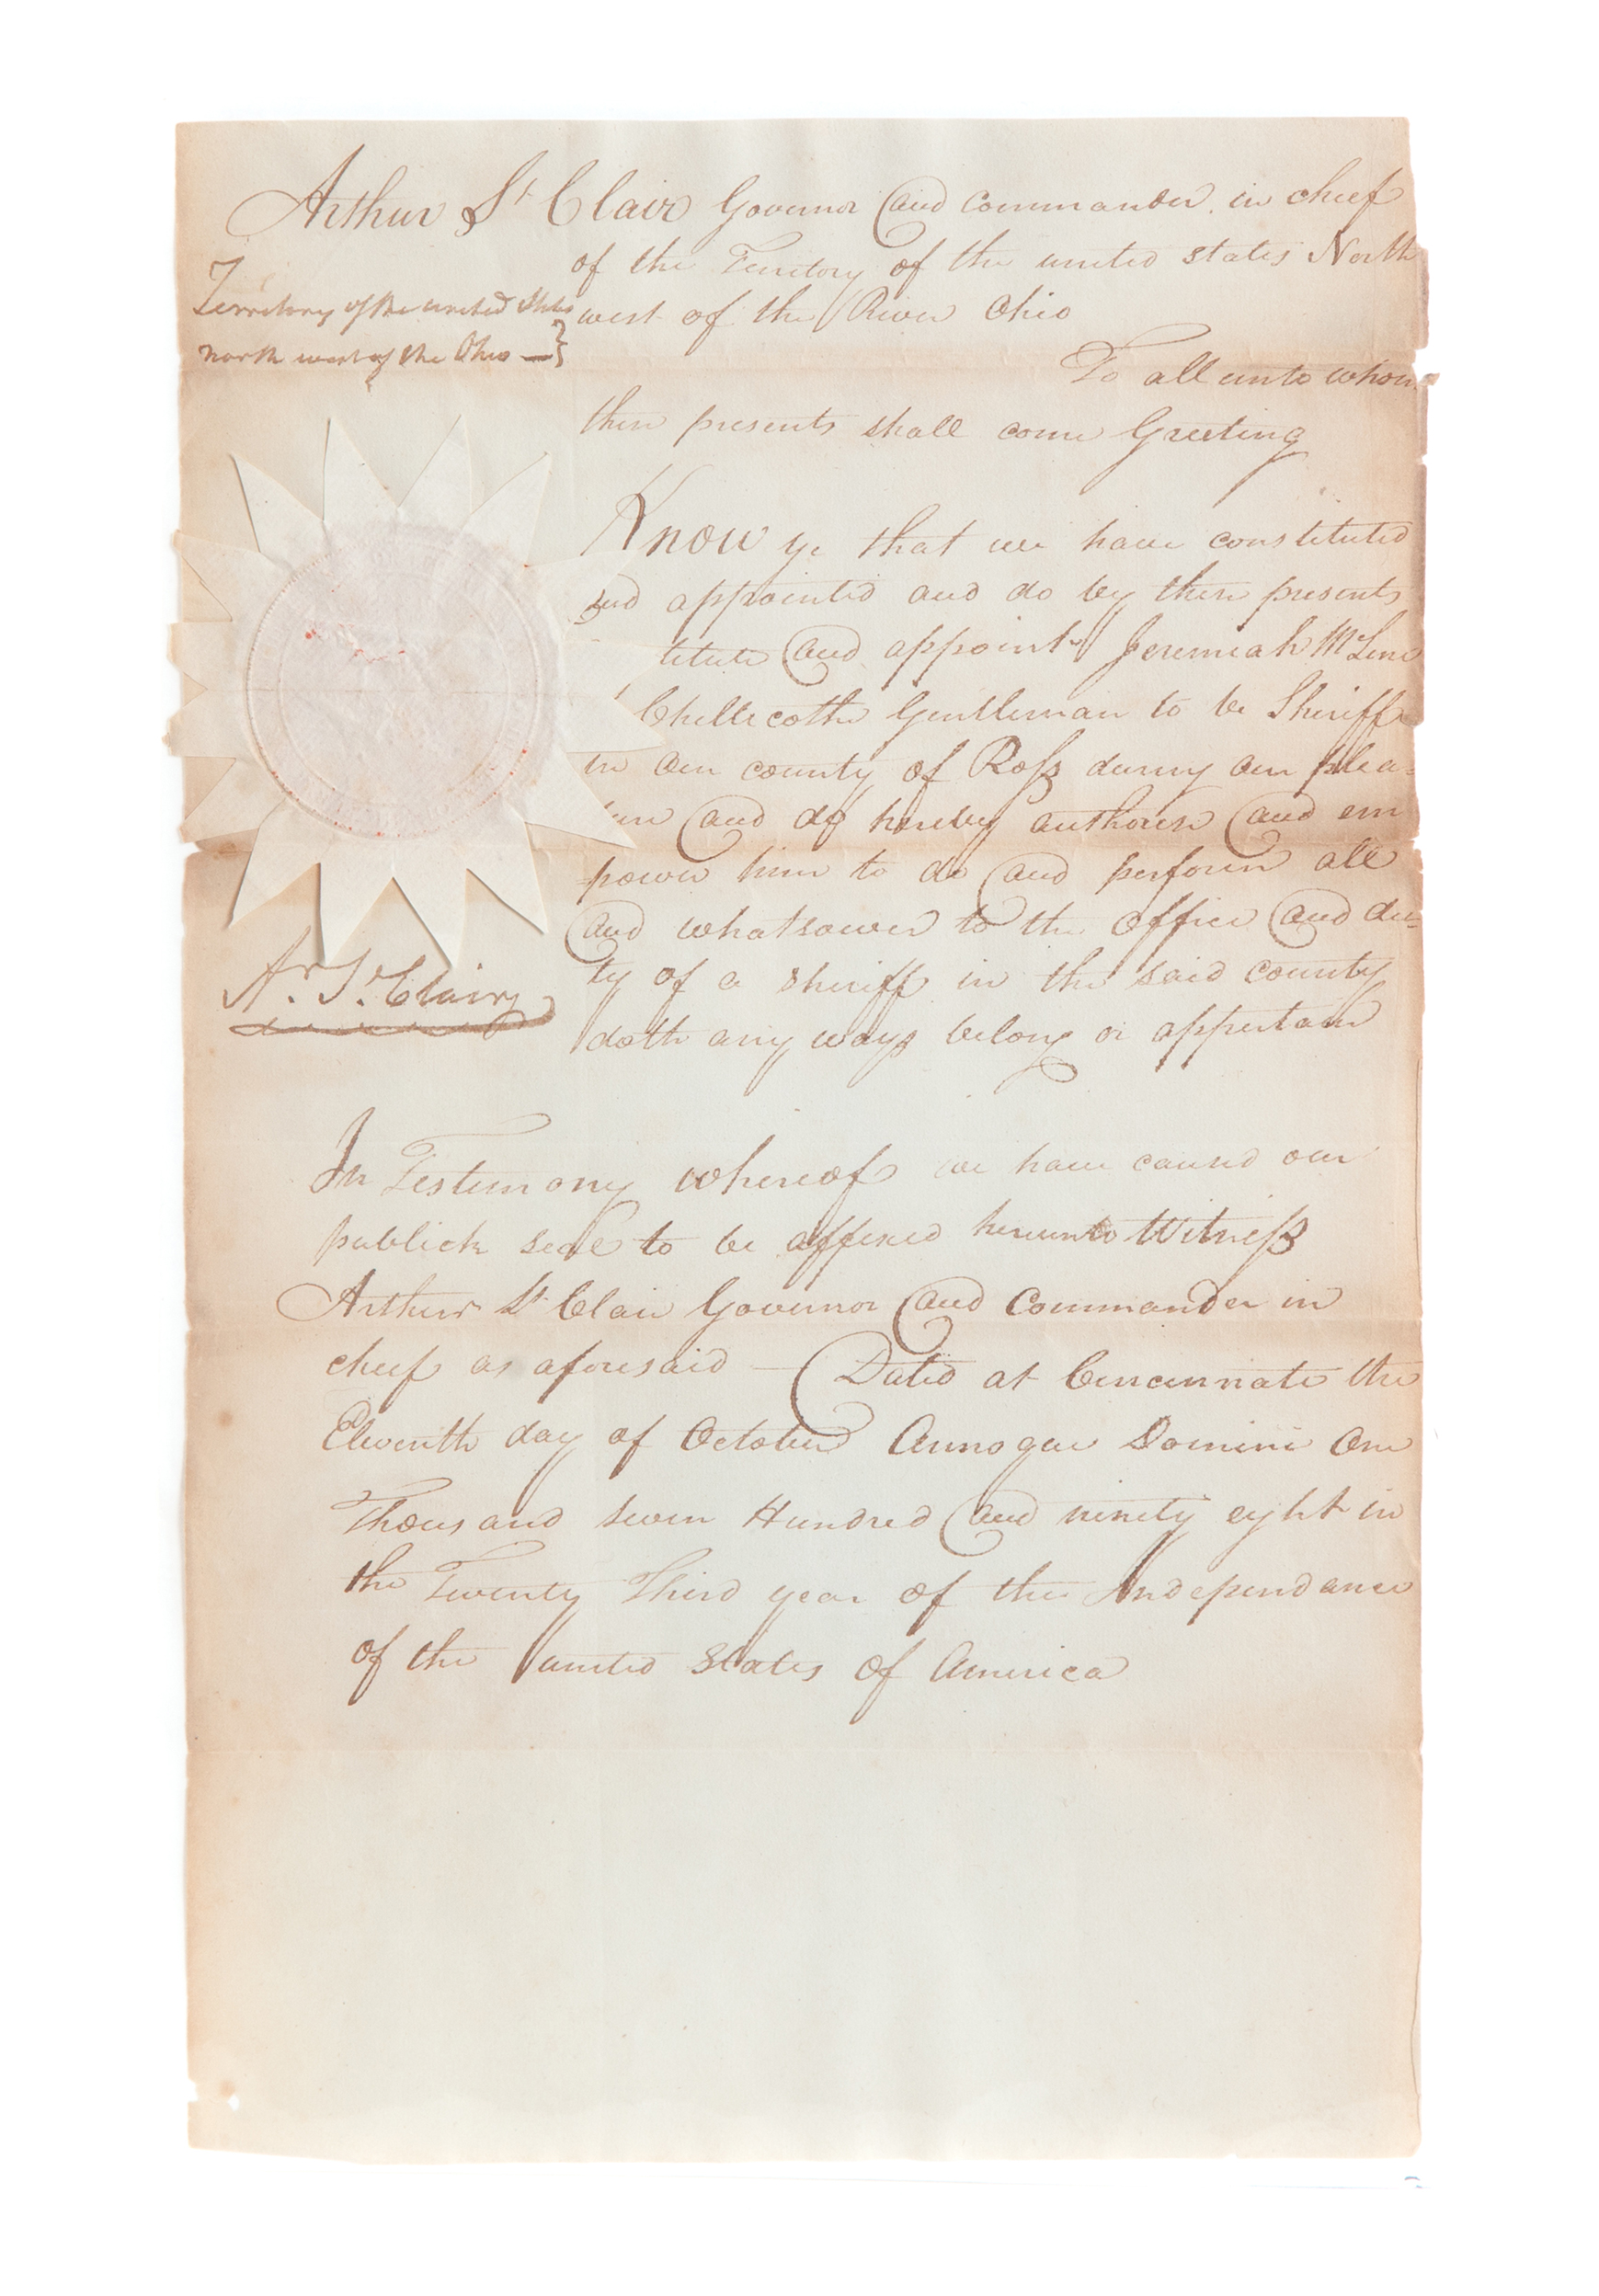 Arthur St Clair Governor and Commander in chief
of the Territory of the united states North
Territory of the united States
west of the River Ohio
north west of the Ohio —}
To all unto whom
these presents shall come Greeting
Know ye that we have constituted
and appointed and do by these presents
titute and appoint Jeremiah McLene
Chellecothe Gentleman to be Sheriff
in our county of Ross during our plea-
sure and do hereby authorise and em
power him to do and perform all
and whatsoever to the office and du-
ty of a sheriff in the said county
Ar. St. Clair
doth any ways belong or appertain
In Testimony whereof we have caused our
publick seal to be affixed hereunto Witness
Arthur St Clair Governor and Commander in
cheef as aforesaid — Dated at Cincinnati the
Eleventh day of October Annoque Domini One
Thousand seven Hundred and ninety eight in
the Twenty Third year of the Independance
of the united States of America